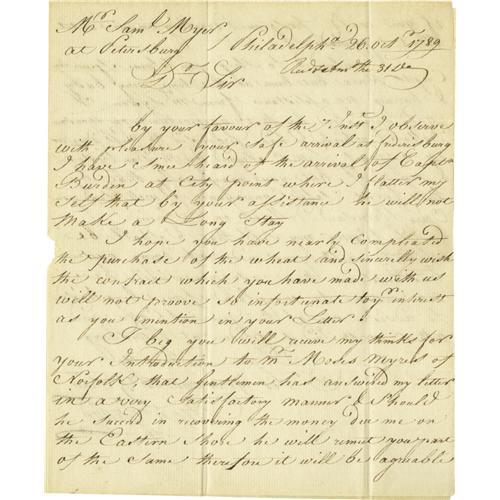 Mr. Saml. Myer
at Petersburg Philadelpha. 26. Octr. 1789
Dr. Sir
by your favour of the 7 Inst. I observe
with pleasure your safe arrival at
I have since heard of the arrival of Captn
Burden at City point where I flatter my
self that by your assistance he will not
make a Long Stay
I hope you have nearly compleated
the purchase of the wheat and sincerelly wish
the contract which you have made with us
will not proove so infortunate to yr. interest
as you mention in your Letter
I beg you will receive my thinks for
your Introduction to Mr. Moses Myers of
Norfolk, that gentlemen has answered my letter
in a very Satisfactory manner & Should
he succeed in recovering the money due me on
the Eastern Shore he will remit you part
of the Same therefore it will be agreable